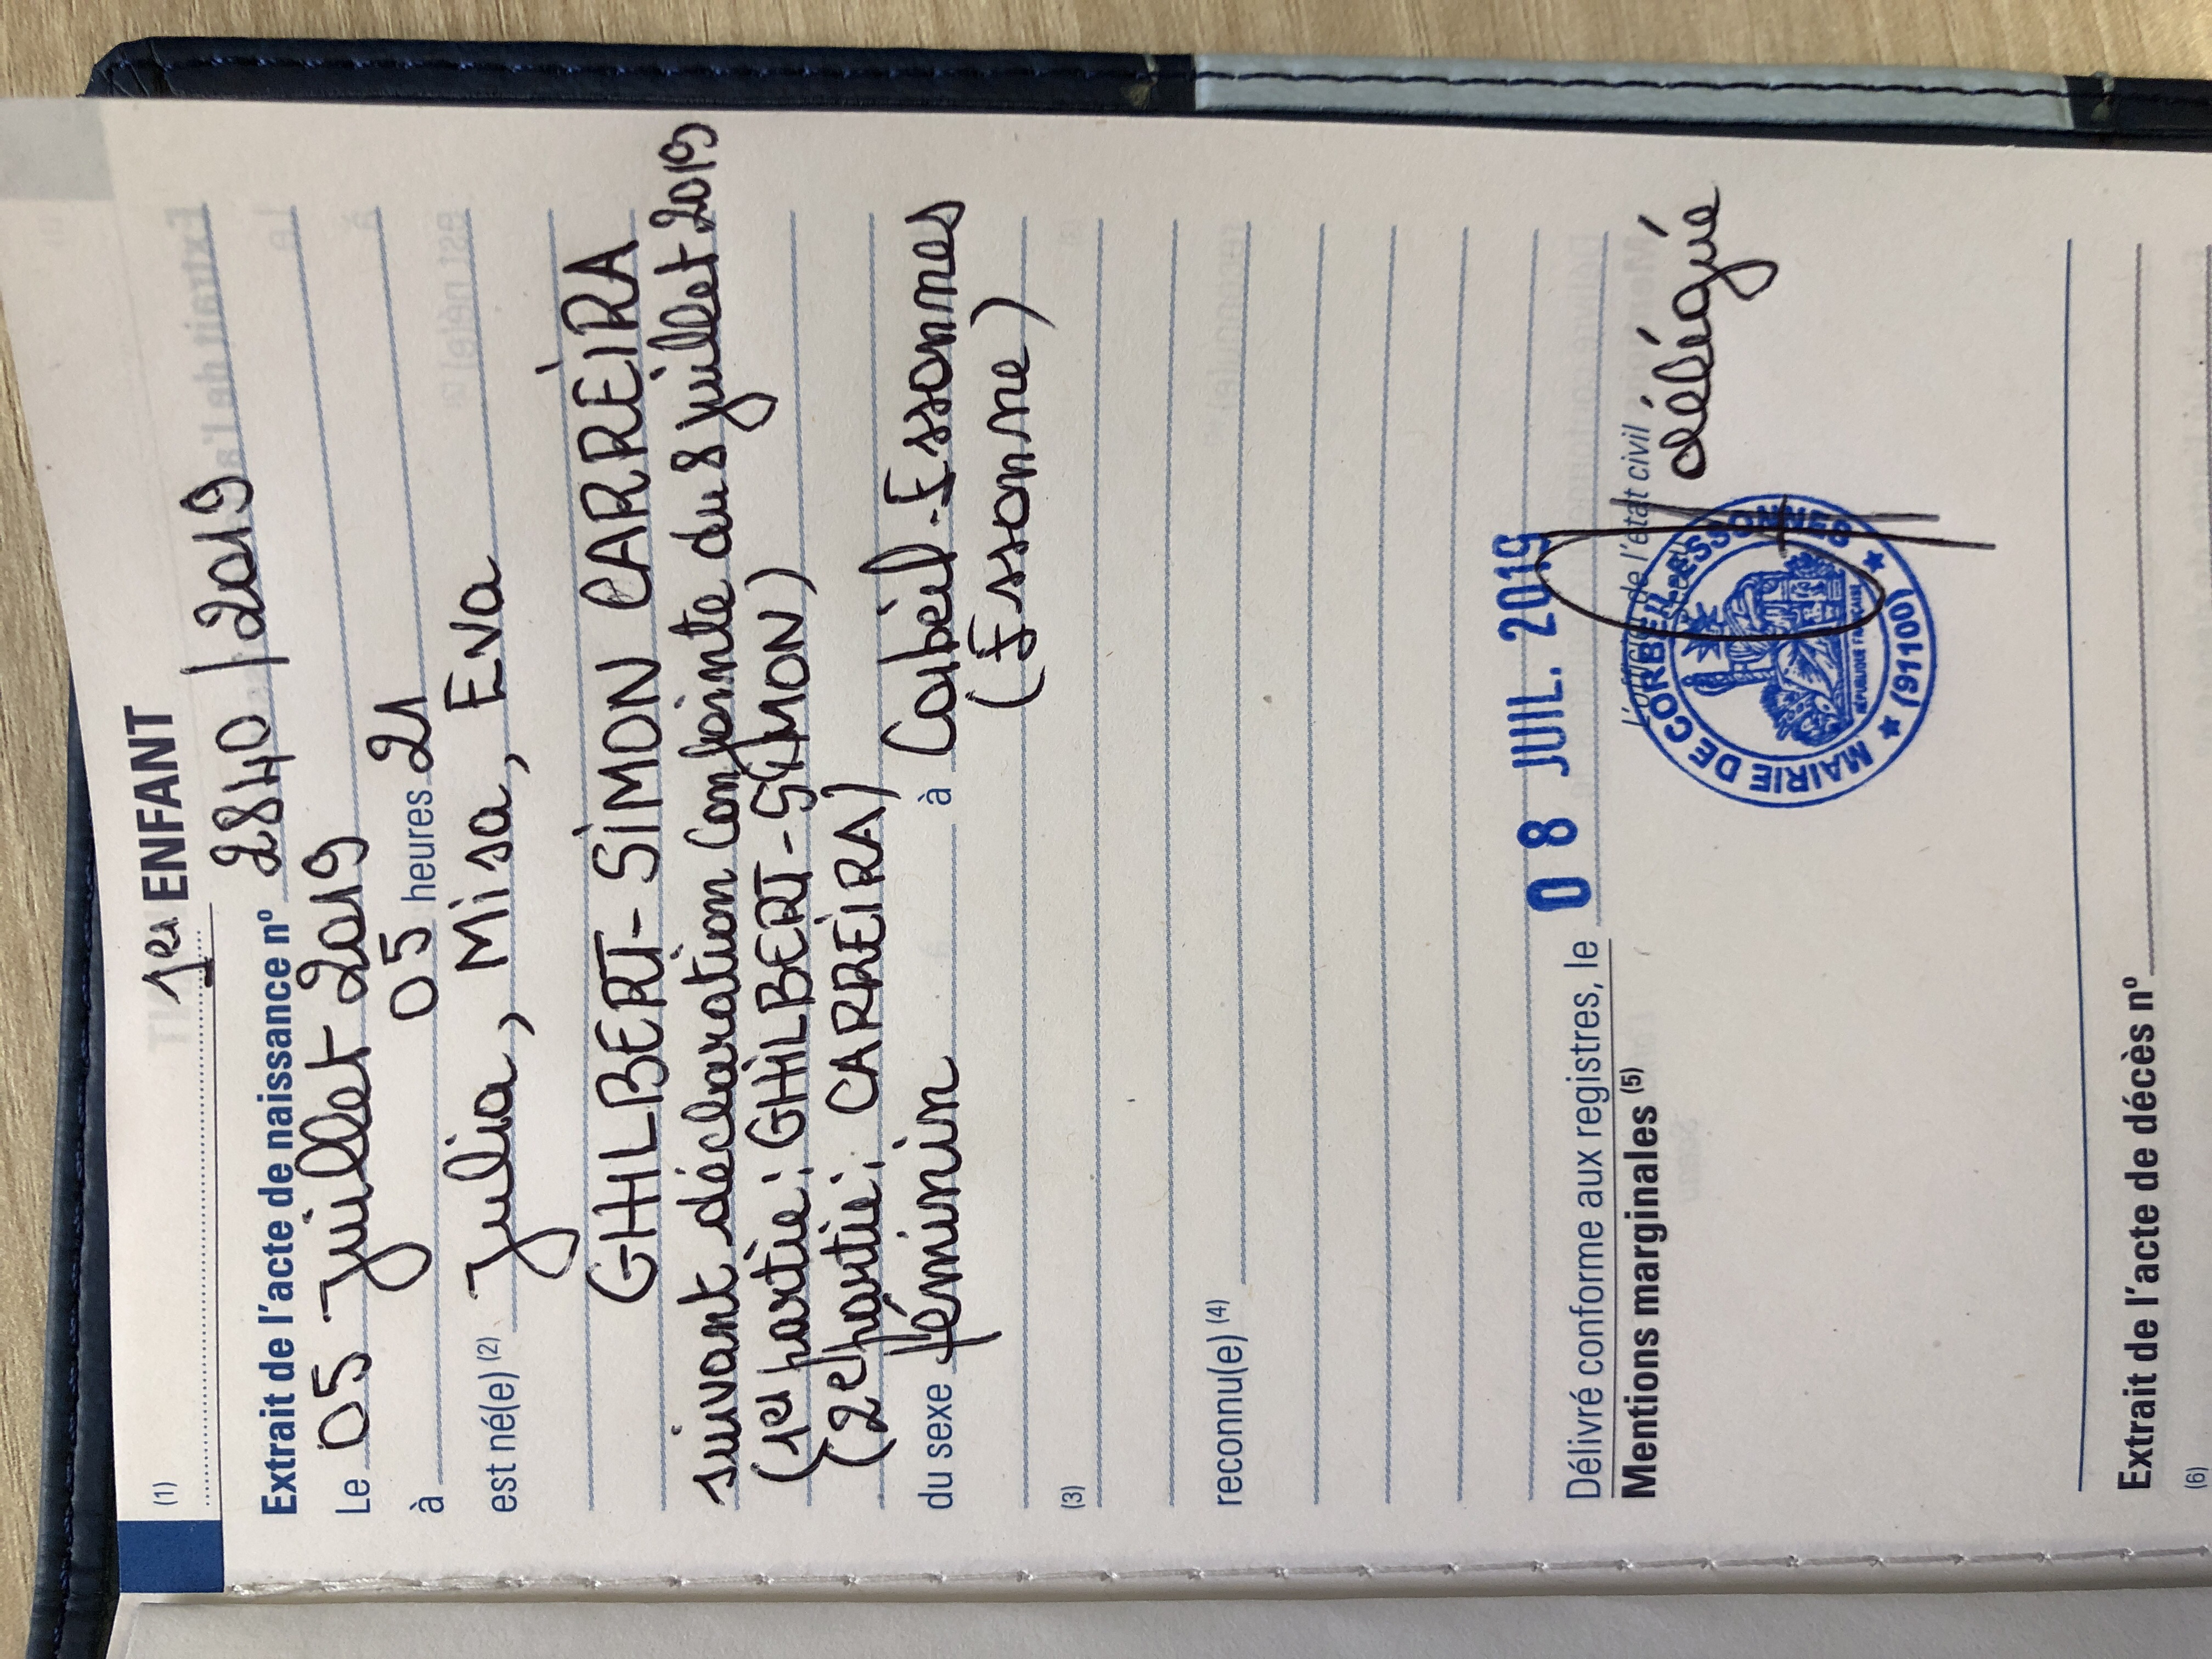 (1) 1er ENFANT
Extrait de l'acte de naissance nº 2840/2019
Le 05 juillet 2019
à 05 heures 21
est né(e) (2) Julia, Misa, Eva
GHILBERT-SIMON CARREIRA
suivant déclaration conjointe du 8 juillet 2019
(1er partie: GHILBERT-SIMON)
(2e partie: CARREIRA)
du sexe féminin à Corbeil-Essonnes
(Essonne)
(3)
reconnu(e) (4)
Délivré conforme aux registres, le 08 JUIL. 2019
Mentions marginales (5)
l'officier de l'état civil
délégué
MAIRIE DE CORBEIL-ESSONNES
RÉPUBLIQUE FRANÇAISE
(91100)
Extrait de l'acte de décès nº
(6)